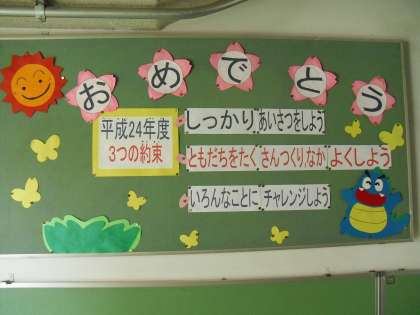 おめでとう
平成24年度
3つの約束
しっかりあいさつをしよう
ともだちをたくさんつくりなかよくしよう
いろんなことにチャレンジしよう